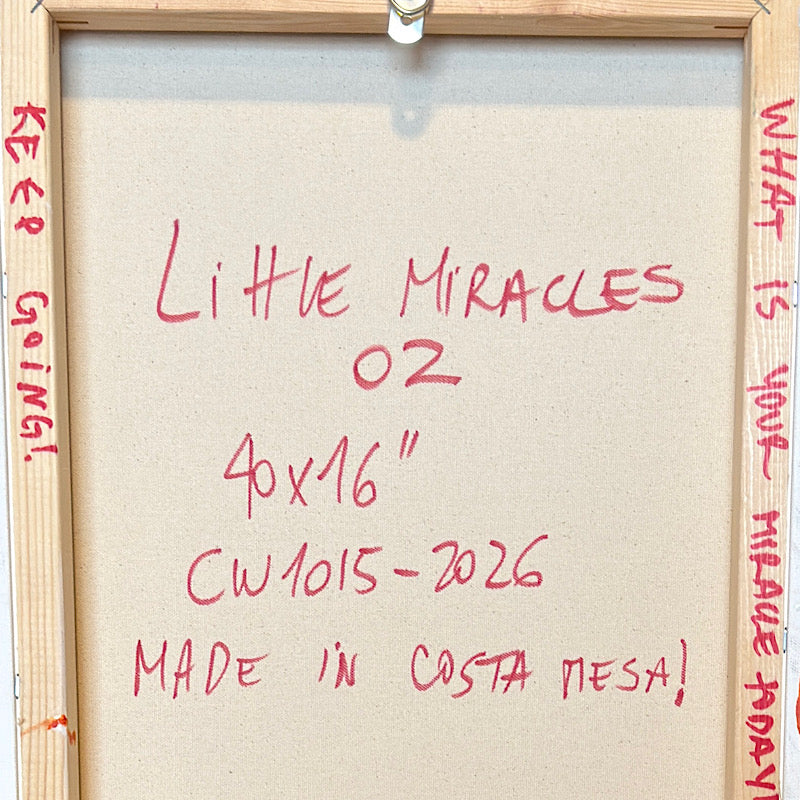 KEEP GOING!
LittLE MiRACLES
02
40x16"
CW1015-2026
MADE iN COSTA MESA!
WHAT IS YOUR MIRACLE TODAY